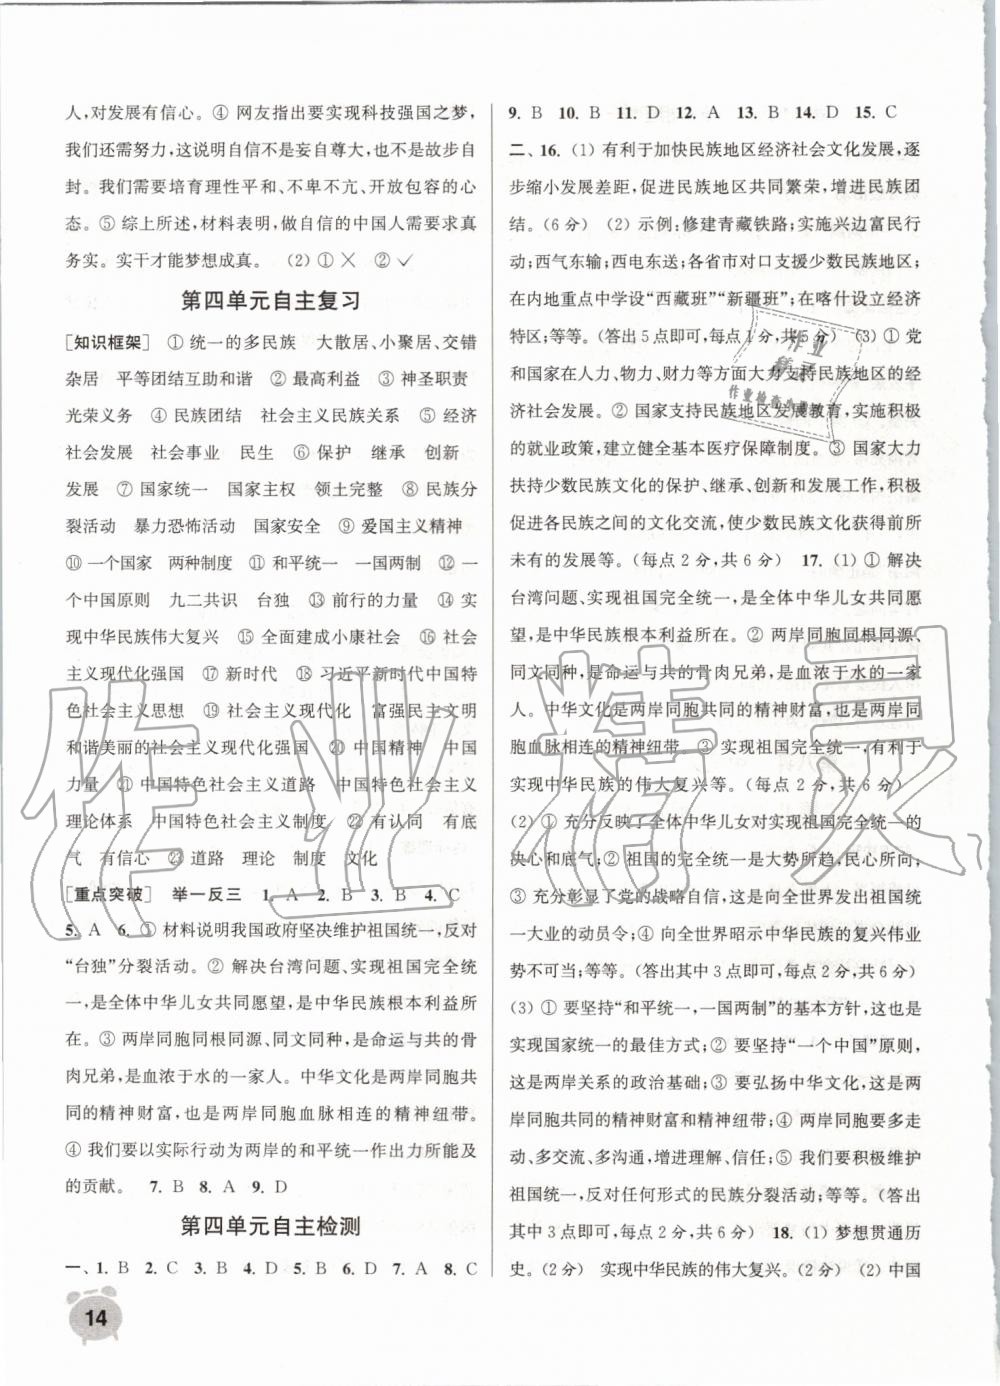 人,对发展有信心。④ 网友指出要实现科技强国之梦,
我们还需努力,这说明自信不是妄自尊大,也不是故步自
封。我们需要培育理性平和、不卑不亢、开放包容的心
态。⑤ 综上所述,材料表明,做自信的中国人需要求真
务实。实干才能梦想成真。 (2) ①✕ ②✓
第四单元自主复习
[知识框架] ① 统一的多民族 大散居、小聚居、交错
杂居 平等团结互助和谐 ② 最高利益 ③ 神圣职责
光荣义务 ④ 民族团结 社会主义民族关系 ⑤ 经济
社会发展 社会事业 民生 ⑥ 保护 继承 创新
发展 ⑦ 国家统一 国家主权 领土完整 ⑧ 民族分
裂活动 暴力恐怖活动 国家安全 ⑨ 爱国主义精神
⑩ 一个国家 两种制度 ⑪ 和平统一 一国两制 ⑫ 一
个中国原则 九二共识 台独 ⑬ 前行的力量 ⑭ 实
现中华民族伟大复兴 ⑮ 全面建成小康社会 ⑯ 社会
主义现代化强国 ⑰ 新时代 ⑱ 习近平新时代中国特
色社会主义思想 ⑲ 社会主义现代化 富强民主文明
和谐美丽的社会主义现代化强国 ⑳ 中国精神 中国
力量 ㉑ 中国特色社会主义道路 中国特色社会主义
理论体系 中国特色社会主义制度 ㉒ 有认同 有底
气 有信心 ㉓ 道路 理论 制度 文化
[重点突破] 举一反三 1. A 2. B 3. B 4. C
5. A 6. ① 材料说明我国政府坚决维护祖国统一,反对
“台独”分裂活动。② 解决台湾问题、实现祖国完全统
一,是全体中华儿女共同愿望,是中华民族根本利益所
在。③ 两岸同胞同根同源、同文同种,是命运与共的骨
肉兄弟,是血浓于水的一家人。中华文化是两岸同胞
共同的精神财富,也是两岸同胞血脉相连的精神纽带。
④ 我们要以实际行动为两岸的和平统一作出力所能及
的贡献。 7. B 8. A 9. D
第四单元自主检测
一、1. B 2. C 3. B 4. D 5. B 6. D 7. A 8. C
14
9. B 10. B 11. D 12. A 13. B 14. D 15. C
二、16. (1) 有利于加快民族地区经济社会文化发展,逐
步缩小发展差距,促进民族地区共同繁荣,增进民族团
结。(6 分) (2) 示例:修建青藏铁路;实施兴边富民行
动;西气东输;西电东送;各省市对口支援少数民族地区;
在内地重点中学设“西藏班”“新疆班”;在喀什设立经济
特区;等等。(答出 5 点即可,每点 1 分,共 5 分) (3) ① 党
和国家在人力、物力、财力等方面大力支持民族地区的经
济社会发展。② 国家支持民族地区发展教育,实施积极
的就业政策,建立健全基本医疗保障制度。③ 国家大力
扶持少数民族文化的保护、继承、创新和发展工作,积极
促进各民族之间的文化交流,使少数民族文化获得前所
未有的发展等。(每点 2 分,共 6 分) 17. (1) ① 解决
台湾问题、实现祖国完全统一,是全体中华儿女共同愿
望,是中华民族根本利益所在。② 两岸同胞同根同源、
同文同种,是命运与共的骨肉兄弟,是血浓于水的一家
人。中华文化是两岸同胞共同的精神财富,也是两岸同
胞血脉相连的精神纽带。③ 实现祖国完全统一,有利于
实现中华民族的伟大复兴等。(每点 2 分,共 6 分)
(2) ① 充分反映了全体中华儿女对实现祖国完全统一的
决心和底气;② 祖国的完全统一是大势所趋,民心所向;
③ 充分彰显了党的战略自信,这是向全世界发出祖国统
一大业的动员令;④ 向全世界昭示中华民族的复兴伟业
势不可挡;等等。(答出其中 3 点即可,每点 2 分,共 6 分)
(3) ① 要坚持“和平统一,一国两制”的基本方针,这是
实现国家统一的最佳方式;② 要坚持“一个中国”原则,
这是两岸关系的政治基础;③ 要弘扬中华文化,这是两
岸同胞共同的精神财富和精神纽带;④ 两岸同胞要多走
动,多交流、多沟通,增进理解、信任;⑤ 我们要积极维护
祖国统一,反对任何形式的民族分裂活动;等等。(答出
其中 3 点即可,每点 2 分,共 6 分) 18. (1) 梦想贯通历
史。(2 分) 实现中华民族的伟大复兴。(2 分) (2) 中国
作业精灵